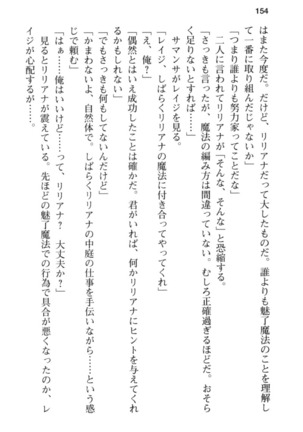 154
はまた今度だ。だけど、リリアナだって大したものだ。誰よりも魅了魔法のことを理解し
て一番に取り組んだじゃないか」
「つまり誰よりも努力家ってことだな」
二人に言われてリリアナが「そんな、そんな」と恐縮する。
「さっきも言ったが、魔法の編み方は間違っていない。むしろ正確過ぎるほどだ。おそら
く足りないとすれば……」
サマンサがレイジを見る。
「レイジ、しばらくリリアナの魔法に付き合ってやってくれ」
「え、俺？」
「偶然とはいえ成功したことは確かだ。君がいれば、何かリリアナにヒントを与えてくれ
るかもしれない」
「さっきも俺、何もしてないんだけど……」
「かまわないよ、自然体で。しばらくリリアナの中庭の仕事を手伝いながら……という感
じで頼む」
「はぁ……俺はいいけど……って、リリアナ？　大丈夫か？」
見るとリリアナが震えている。先ほどの魅了魔法での行為で具合が悪くなったのか、レ
イジが心配するが……。